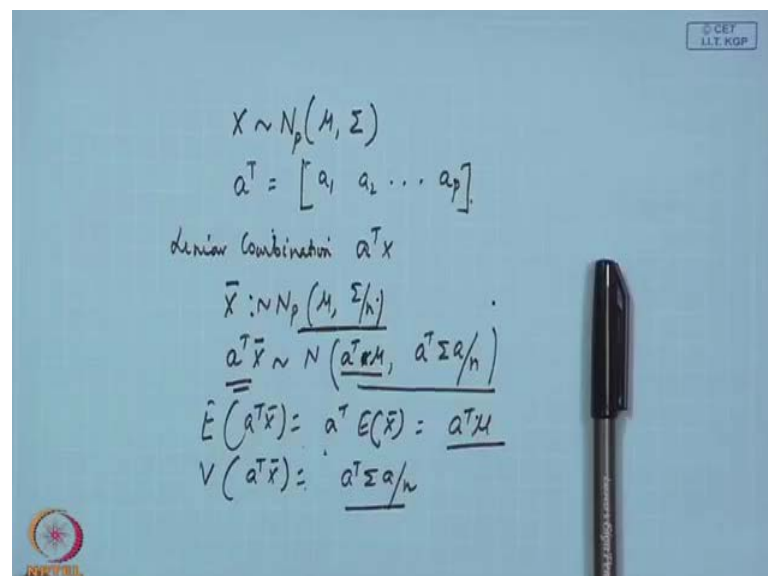 © CET
I.I.T. KGP
X ~ N_p(μ, Σ)
a^T = [a_1 a_2 ... a_p].
Linear Combination a^T x
X̄ : ~ N_p (μ, Σ/n)
a^T x̄ ~ N (a^T μ, a^T Σ a/n)
E (a^T x̄) = a^T E(x̄) = a^T μ
V (a^T x̄) = a^T Σ a/n
NPTEL